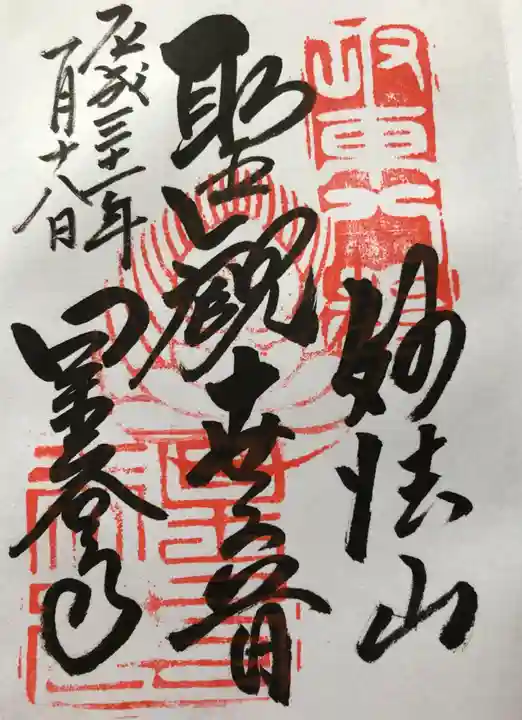 坂東八番
妙法山
聖観世音
星谷寺
平成三十一年
一月十八日